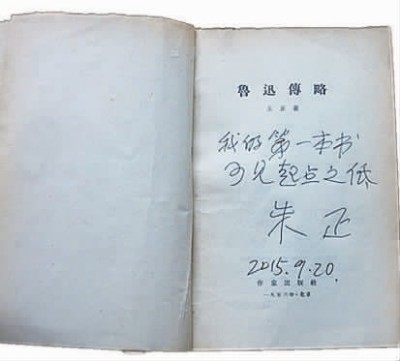 魯迅傳略
朱正著
我的第一本书
可见起点之低
朱正
2015.9.20.
作家出版社
一九五六年·北京